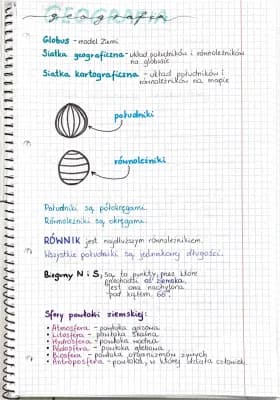 GEOGRAFIA
geografia
Globus - model Ziemi
Siatka geograficzna - układ południków i równoleżników
na globusie
Siatka kartograficzna - układ południków i
równoleżników na mapie
południki
równoleżniki
Południki są półokręgami.
Równoleżniki są okręgami.
RÓWNIK jest najdłuższym równoleżnikiem.
Wszystkie południki są jednakowej długości.
Bieguny N i S, są to punkty, przez które
przechodzi oś ziemska,
jest ona nachylona
pod kątem 66°
Sfery powłoki ziemskiej:
• Atmosfera - powłoka gazowa
• Litosfera - powłoka skalna
• Hydrosfera - powłoka wodna
• Pedosfera - powłoka glebowa
• Biosfera - powłoka organizmów żywych
• Antroposfera - powłoka, w której działa człowiek